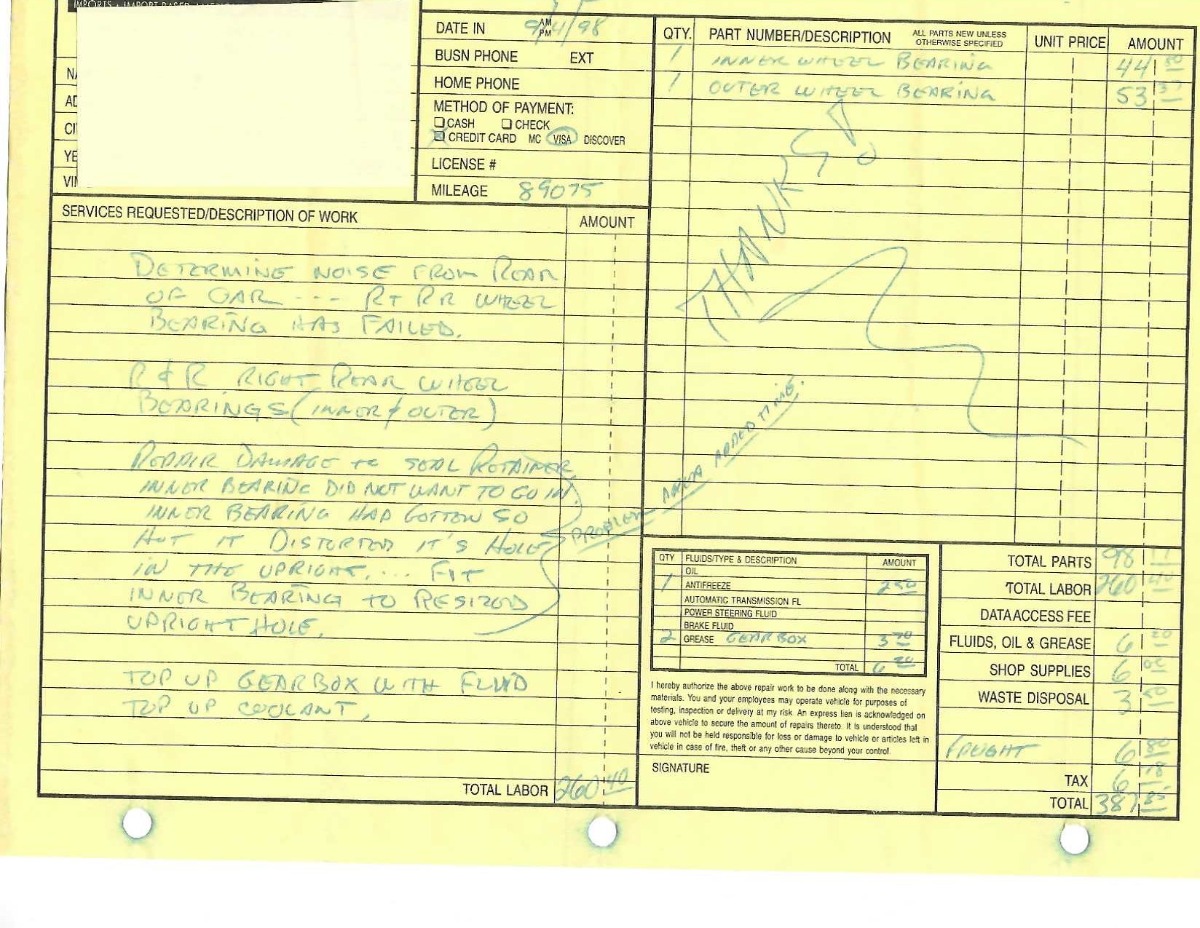 IMPORTS • IMPORT BASED
DATE IN 9/4/98
AM
PM
BUSN PHONE EXT
HOME PHONE
METHOD OF PAYMENT:
CASH CHECK
CREDIT CARD MC VISA DISCOVER
LICENSE #
MILEAGE 89075
NA
AD
CI
YE
VIN
SERVICES REQUESTED/DESCRIPTION OF WORK AMOUNT
DETERMINE NOISE FROM REAR
OF CAR --- RT RR WHEEL
BEARING HAS FAILED.
R & R RIGHT REAR WHEEL
BEARINGS (INNER & OUTER)
REPAIR DAMAGE to SEAL RETAINER
INNER BEARING DID NOT WANT TO GO IN
INNER BEARING HAD GOTTEN SO
HOT IT DISTORTED IT'S HOLE
IN THE UPRIGHT.... FIT
INNER BEARING TO RESIZED
UPRIGHT HOLE.
PROBLEM AREA ADDED TIME.
TOP UP GEARBOX WITH FLUID
TOP UP COOLANT.
TOTAL LABOR 260 40
QTY. PART NUMBER/DESCRIPTION ALL PARTS NEW UNLESS OTHERWISE SPECIFIED UNIT PRICE AMOUNT
1 INNER WHEEL BEARING 44 80
1 OUTER WHEEL BEARING 53 37
THANKS!
QTY FLUIDS/TYPE & DESCRIPTION AMOUNT
OIL
1 ANTIFREEZE 2 50
AUTOMATIC TRANSMISSION FL
POWER STEERING FLUID
BRAKE FLUID
2 GREASE GEARBOX 3 70
TOTAL 6 20
I hereby authorize the above repair work to be done along with the necessary
materials. You and your employees may operate vehicle for purposes of
testing, inspection or delivery at my risk. An express lien is acknowledged on
above vehicle to secure the amount of repairs thereto. It is understood that
you will not be held responsible for loss or damage to vehicle or articles left in
vehicle in case of fire, theft or any other cause beyond your control.
SIGNATURE
TOTAL PARTS 98 17
TOTAL LABOR 260 40
DATA ACCESS FEE
FLUIDS, OIL & GREASE 6 20
SHOP SUPPLIES 6 00
WASTE DISPOSAL 3 50
FREIGHT 6 80
TAX 6 78
TOTAL 387 85